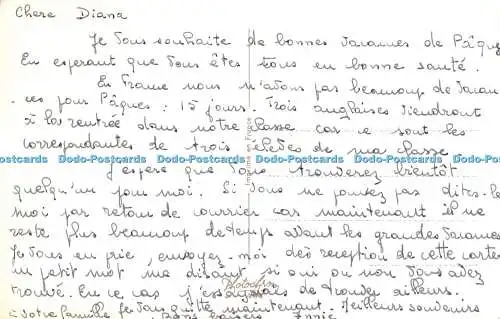 Chere Diana
Je vous souhaite de bonnes vacances de Pâques
En esperant que vous êtes tous en bonne santé.
En France nous n'avons pas beaucoup de vacan
-ces pour Pâques : 15 jours. Trois anglaises viendront
à la rentrée dans notre classe car ce sont les
correspondantes de trois élèves de ma classe
Dodo-Postcards Dodo-Postcards Dodo-Postcards Dodo-Postcards Dodo-Postcards Dodo-Postcards
J'espère que vous trouverez bientôt
quelqu'un pour moi. Si vous ne pensez pas dites-le
moi par retour de courrier car maintenant il ne
reste plus beaucoup de temps avant les grandes vacances
Je vous en prie, envoyez-moi dès reception de cette carte
un petit mot me disant si oui ou non vous avez
trouvé. En ce cas j'essayerais de trouver ailleurs.
à votre famille Je vous quitte maintenant. Meilleurs souvenirs
Bons Annie
Imprimé en France